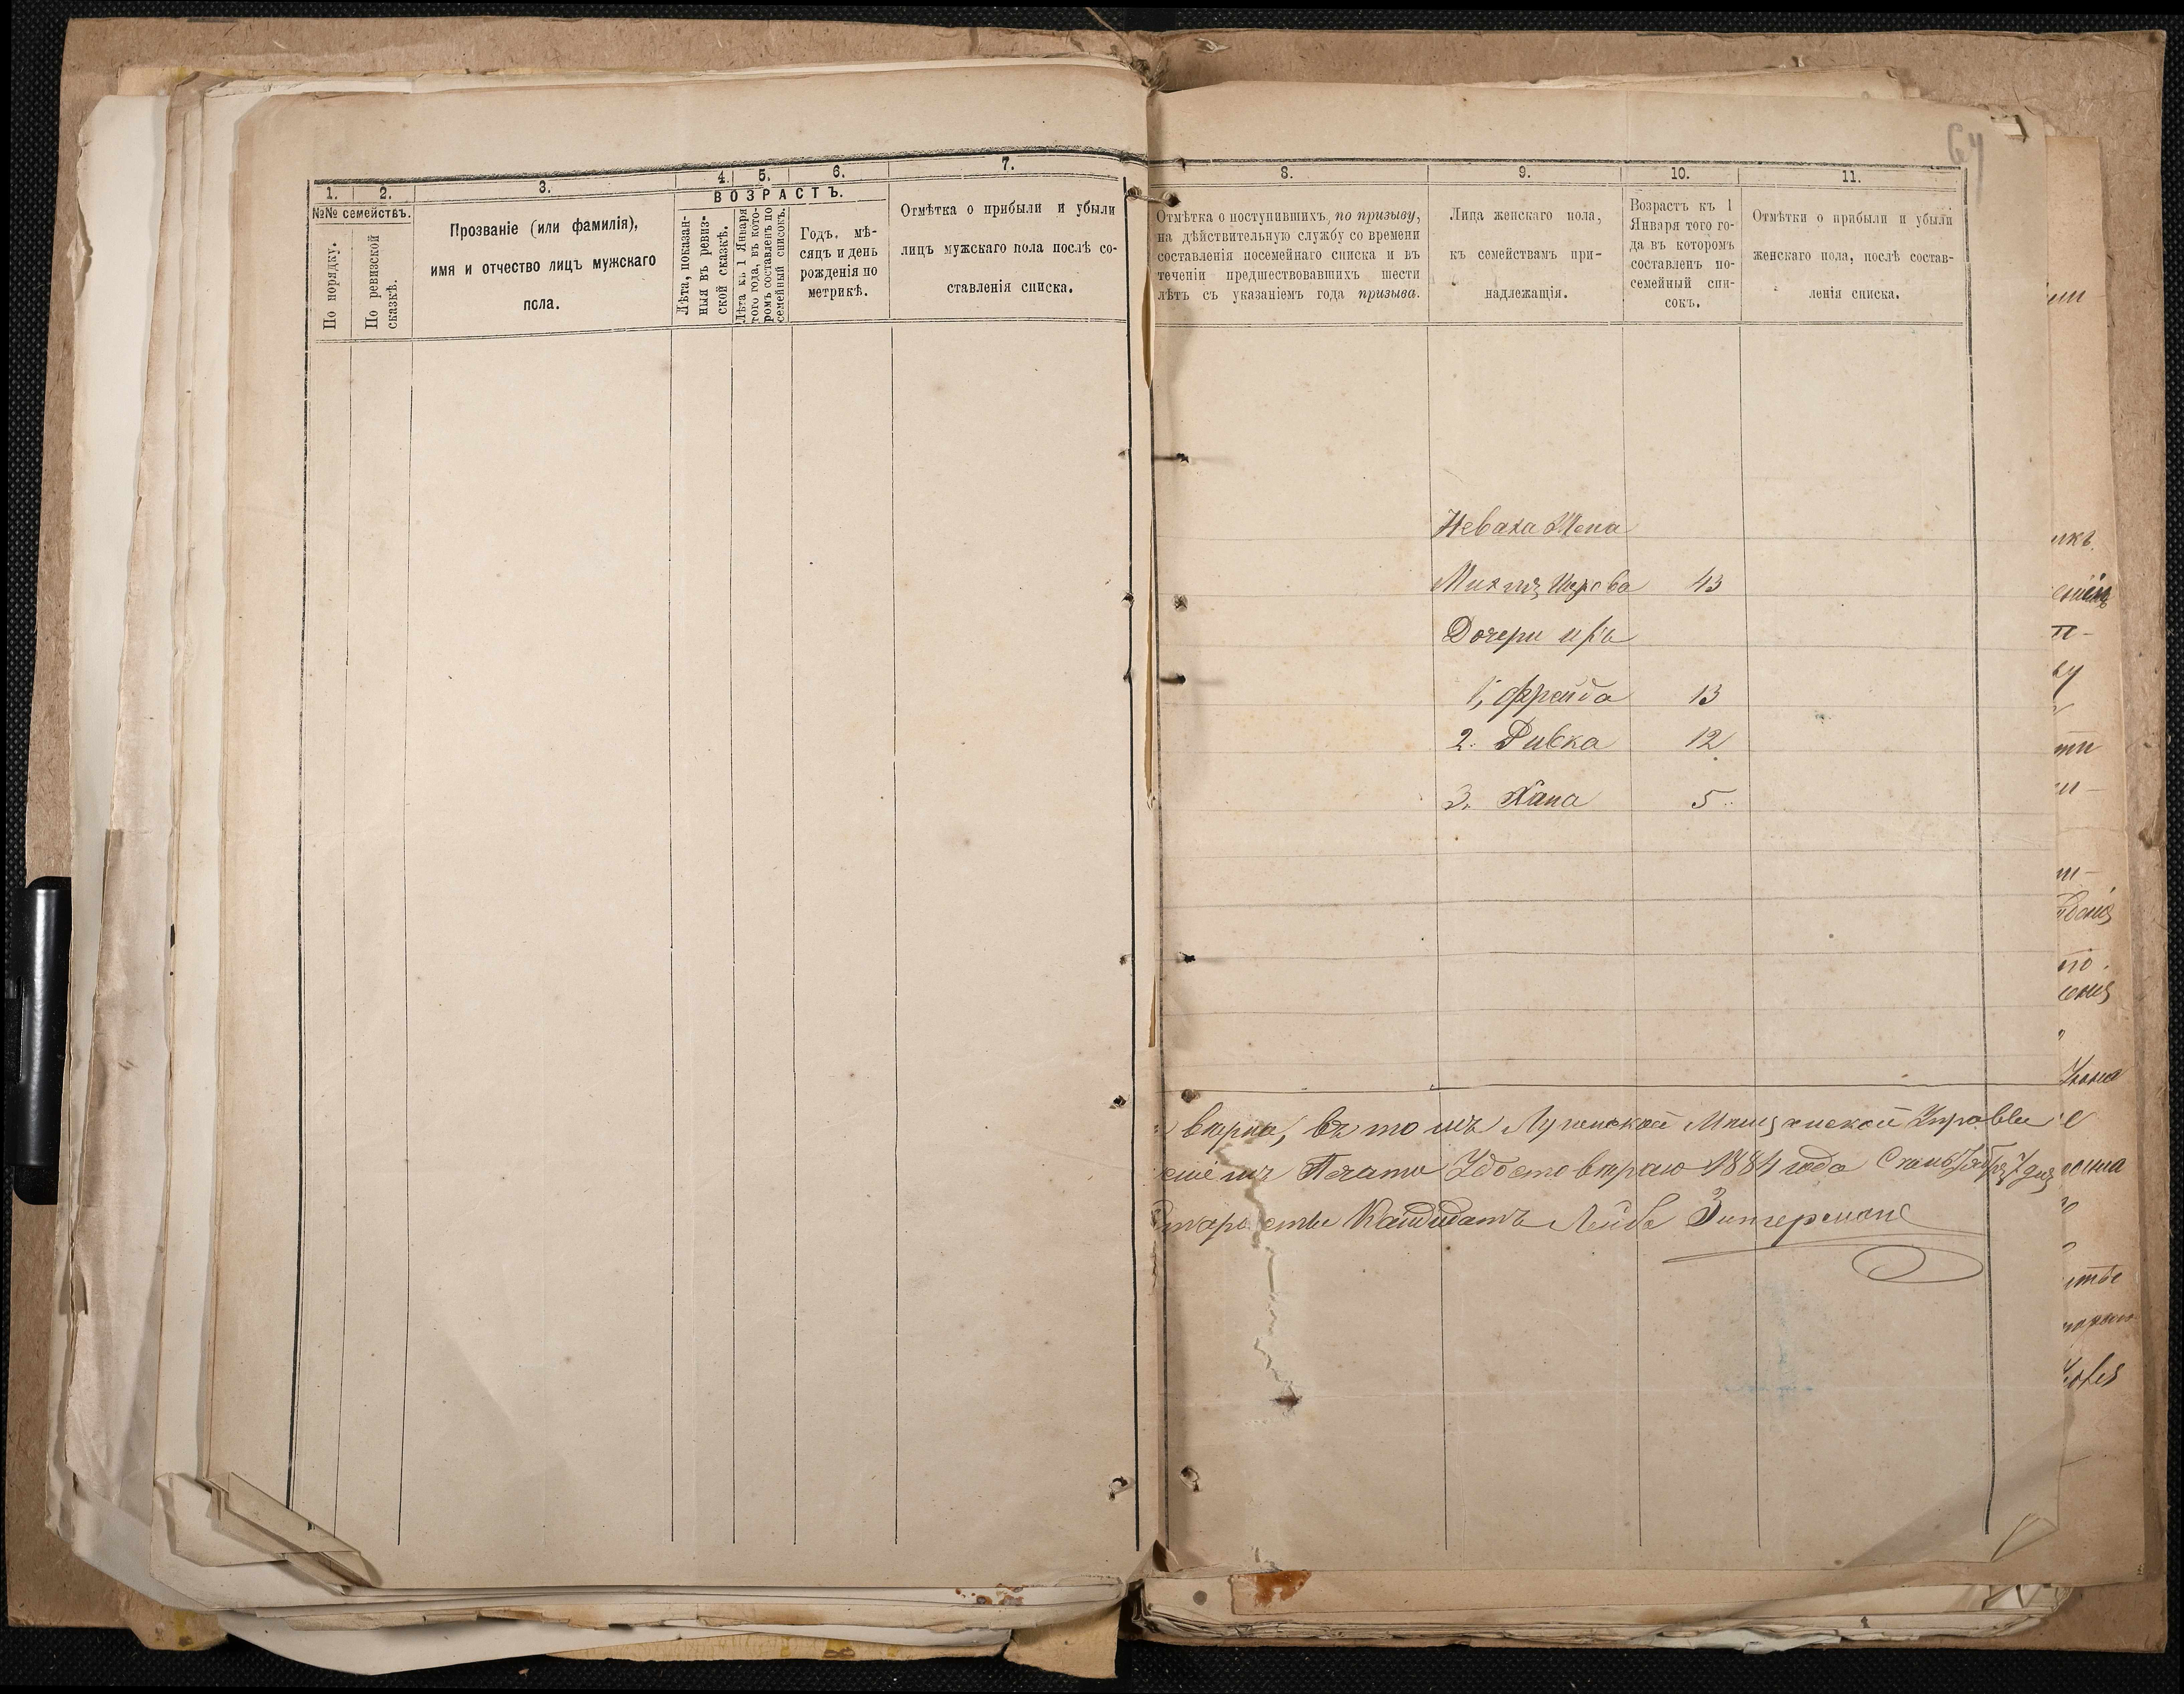 64
1. 2. 3. 4. 5. 6. 7.
№№ семействъ.
По порядку.
По ревизской
сказкѣ.
Прозваніе (или фамилія),
имя и отчество лицъ мужскаго
пола.
ВОЗРАСТЪ.
Лѣта, показан-
ныя въ ревиз-
ской сказкѣ.
Лѣта къ 1 Января
того года, въ кото-
ромъ составленъ по
семейный списокъ.
Годъ, мѣ-
сяцъ и день
рожденія по
метрикѣ.
Отмѣтка о прибыли и убыли
лицъ мужскаго пола послѣ со-
ставленія списка.
8. 9. 10. 11.
Отмѣтка о поступившихъ, по призыву,
на дѣйствительную службу со времени
составленія посемейнаго списка и въ
теченіи предшествовавшихъ шести
лѣтъ съ указаніемъ года призыва.
Лица женскаго пола,
къ семействамъ при-
надлежащія.
Возрастъ къ 1
Января того го-
да въ которомъ
составленъ по-
семейный спи-
сокъ.
Отмѣтки о прибыли и убыли
женскаго пола, послѣ состав-
ленія списка.
Жена
43
Дочери ихъ
1, Фрейда 13
2. Ривка 12
3. Хана 5
вѣрна, въ томъ Мѣщанской Управы
Печати Удостовѣряю 1884 года
Кандидатъ Лейба Зингерманъ